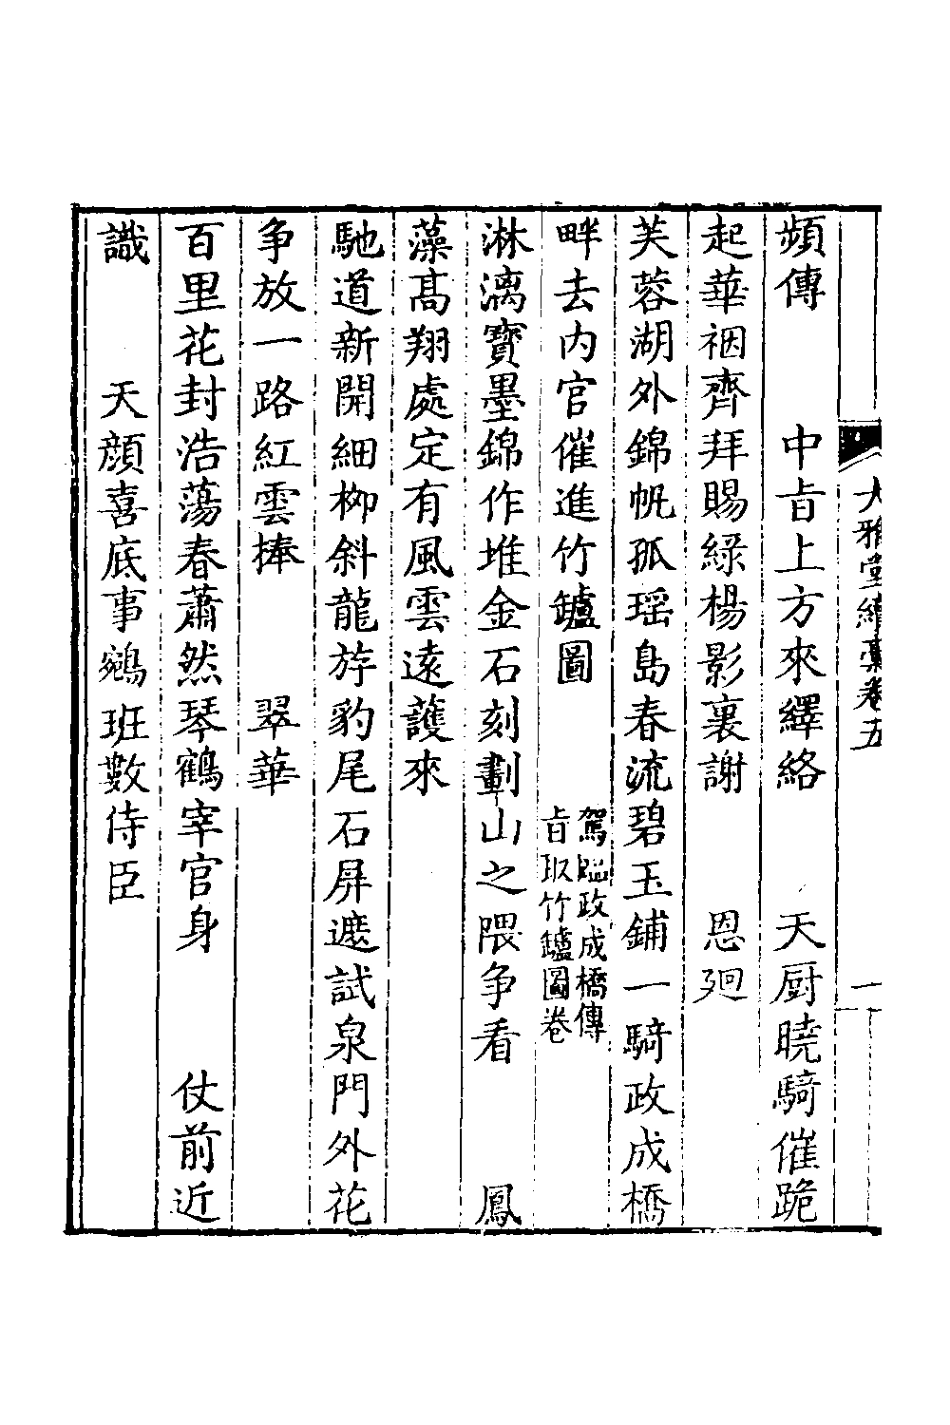 大雅堂續稾卷五
一
頻傳 中旨上方來繹絡 天厨曉騎催跪
起華裀齊拜賜綠楊影裏謝 恩廻
芙蓉湖外錦帆孤瑶島春流碧玉鋪一騎政成橋
畔去内官催進竹鑪圖
駕蹕政成橋傳
旨取竹鑪圖卷
淋漓寳墨錦作堆金石刻劃山之隈争看 鳳
藻髙翔處定有風雲逺護來
馳道新開細栁斜龍斿豹尾石屏遮試泉門外花
争放一路紅雲捧 翠華
百里花封浩蕩春蕭然琴鶴宰官身 仗前近
識 天顔喜底事鵷班數侍臣